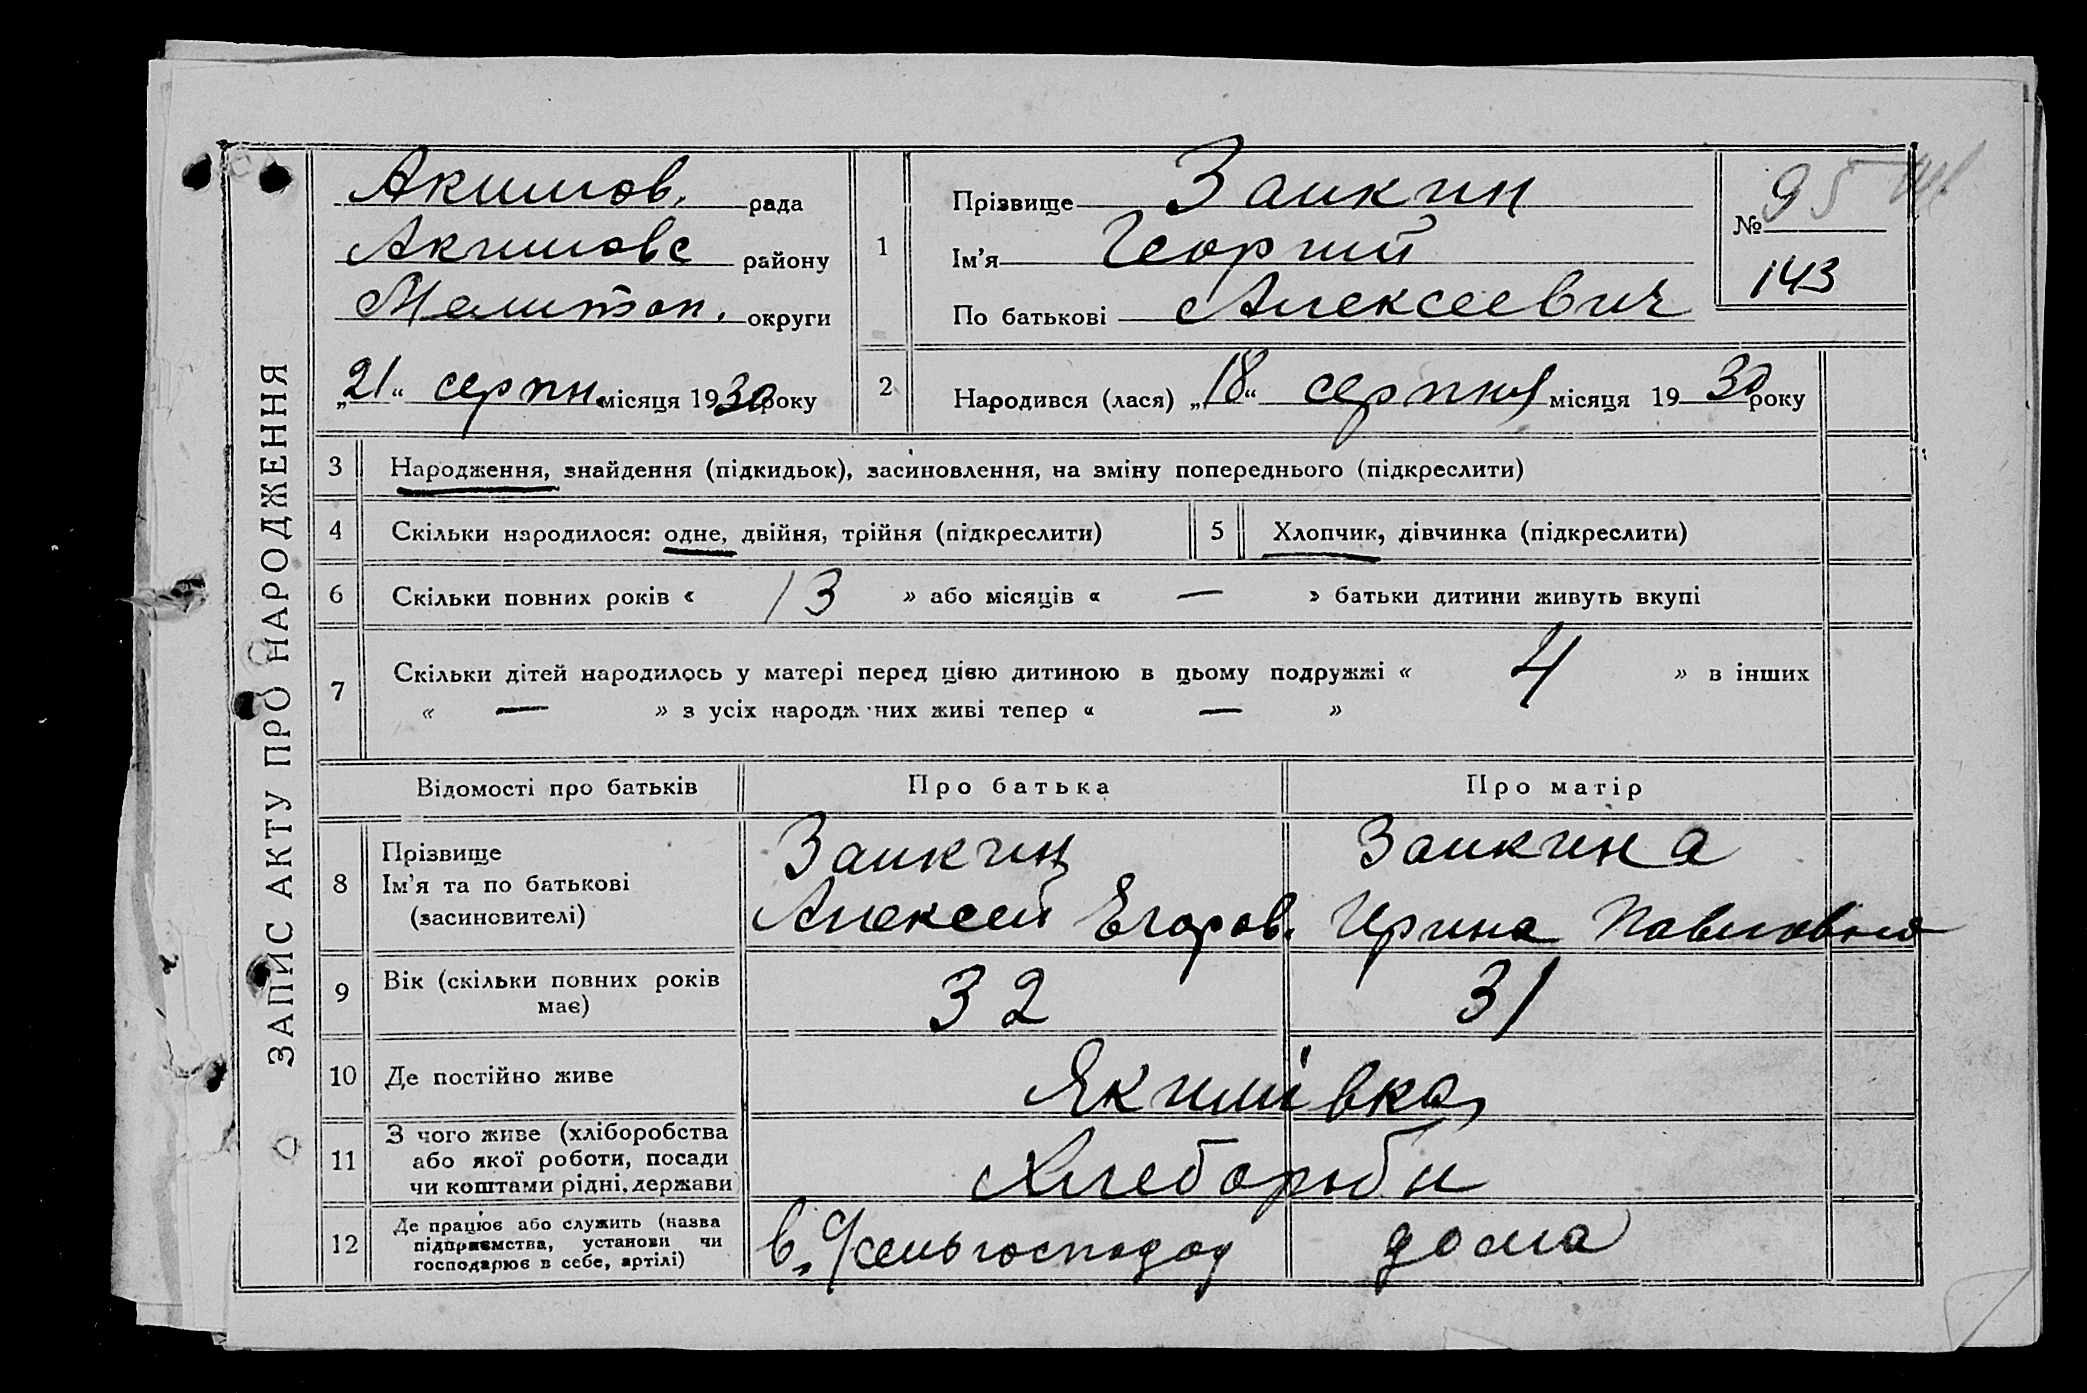 ЗАПИС АКТУ ПРО НАРОДЖЕННЯ
Акимов. рада
Акимовс району
Мелитоп. округи
„21“ серпн. місяця 1930 року
1
Прізвище Заикин
Ім’я Георгий
По батькові Алексеевич
№ 95
143
2
Народився (лася) „18“ серпня місяця 1930 року
3 Народження, знайдення (підкидьок), засиновлення, на зміну попереднього (підкреслити)
4 Скільки народилося: одне, двійня, трійня (підкреслити) 5 Хлопчик, дівчинка (підкреслити)
6 Скільки повних років « 13 » або місяців « — » батьки дитини живуть вкупі
7 Скільки дітей народилось у матері перед цією дитиною в цьому подружжі « 4 » в інших
« — » з усіх народж них живі тепер « — »
Відомості про батьків Про батька Про матір
8 Прізвище
Ім’я та по батькові
(засиновителі)
Заикин
Алексей Егоров.
Заикина
Ирина Павловна
9 Вік (скільки повних років
має)
32 31
10 Де постійно живе Якимівка
11 З чого живе (хліборобства
або якої роботи, посади
чи коштами рідні, держави
Хлеборобы
12 Де працює або служить (назва
підприємства, установи чи
господарює в себе, артілі)
дома